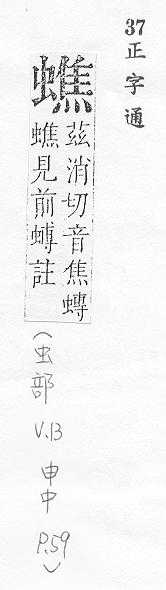 37 正字通
蟭
茲消切音焦䗚
蟭見前䗚註
(虫部 V.13 申中 P.59)